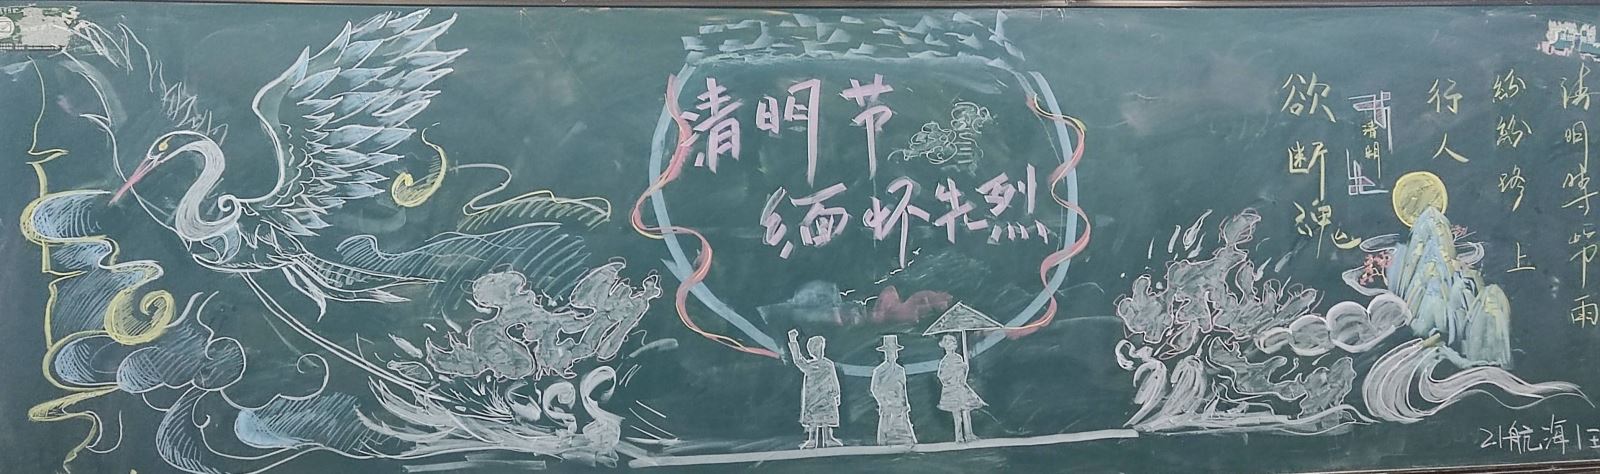 清明节
缅怀先烈
清明時节雨
紛紛路上
行人
欲断魂
清明
21航海1王